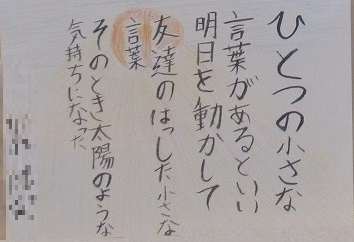 ひとつの小さな
言葉があるといい
明日を動かして
友達のはっした小さな
言葉
そのとき太陽のような
気持ちになった